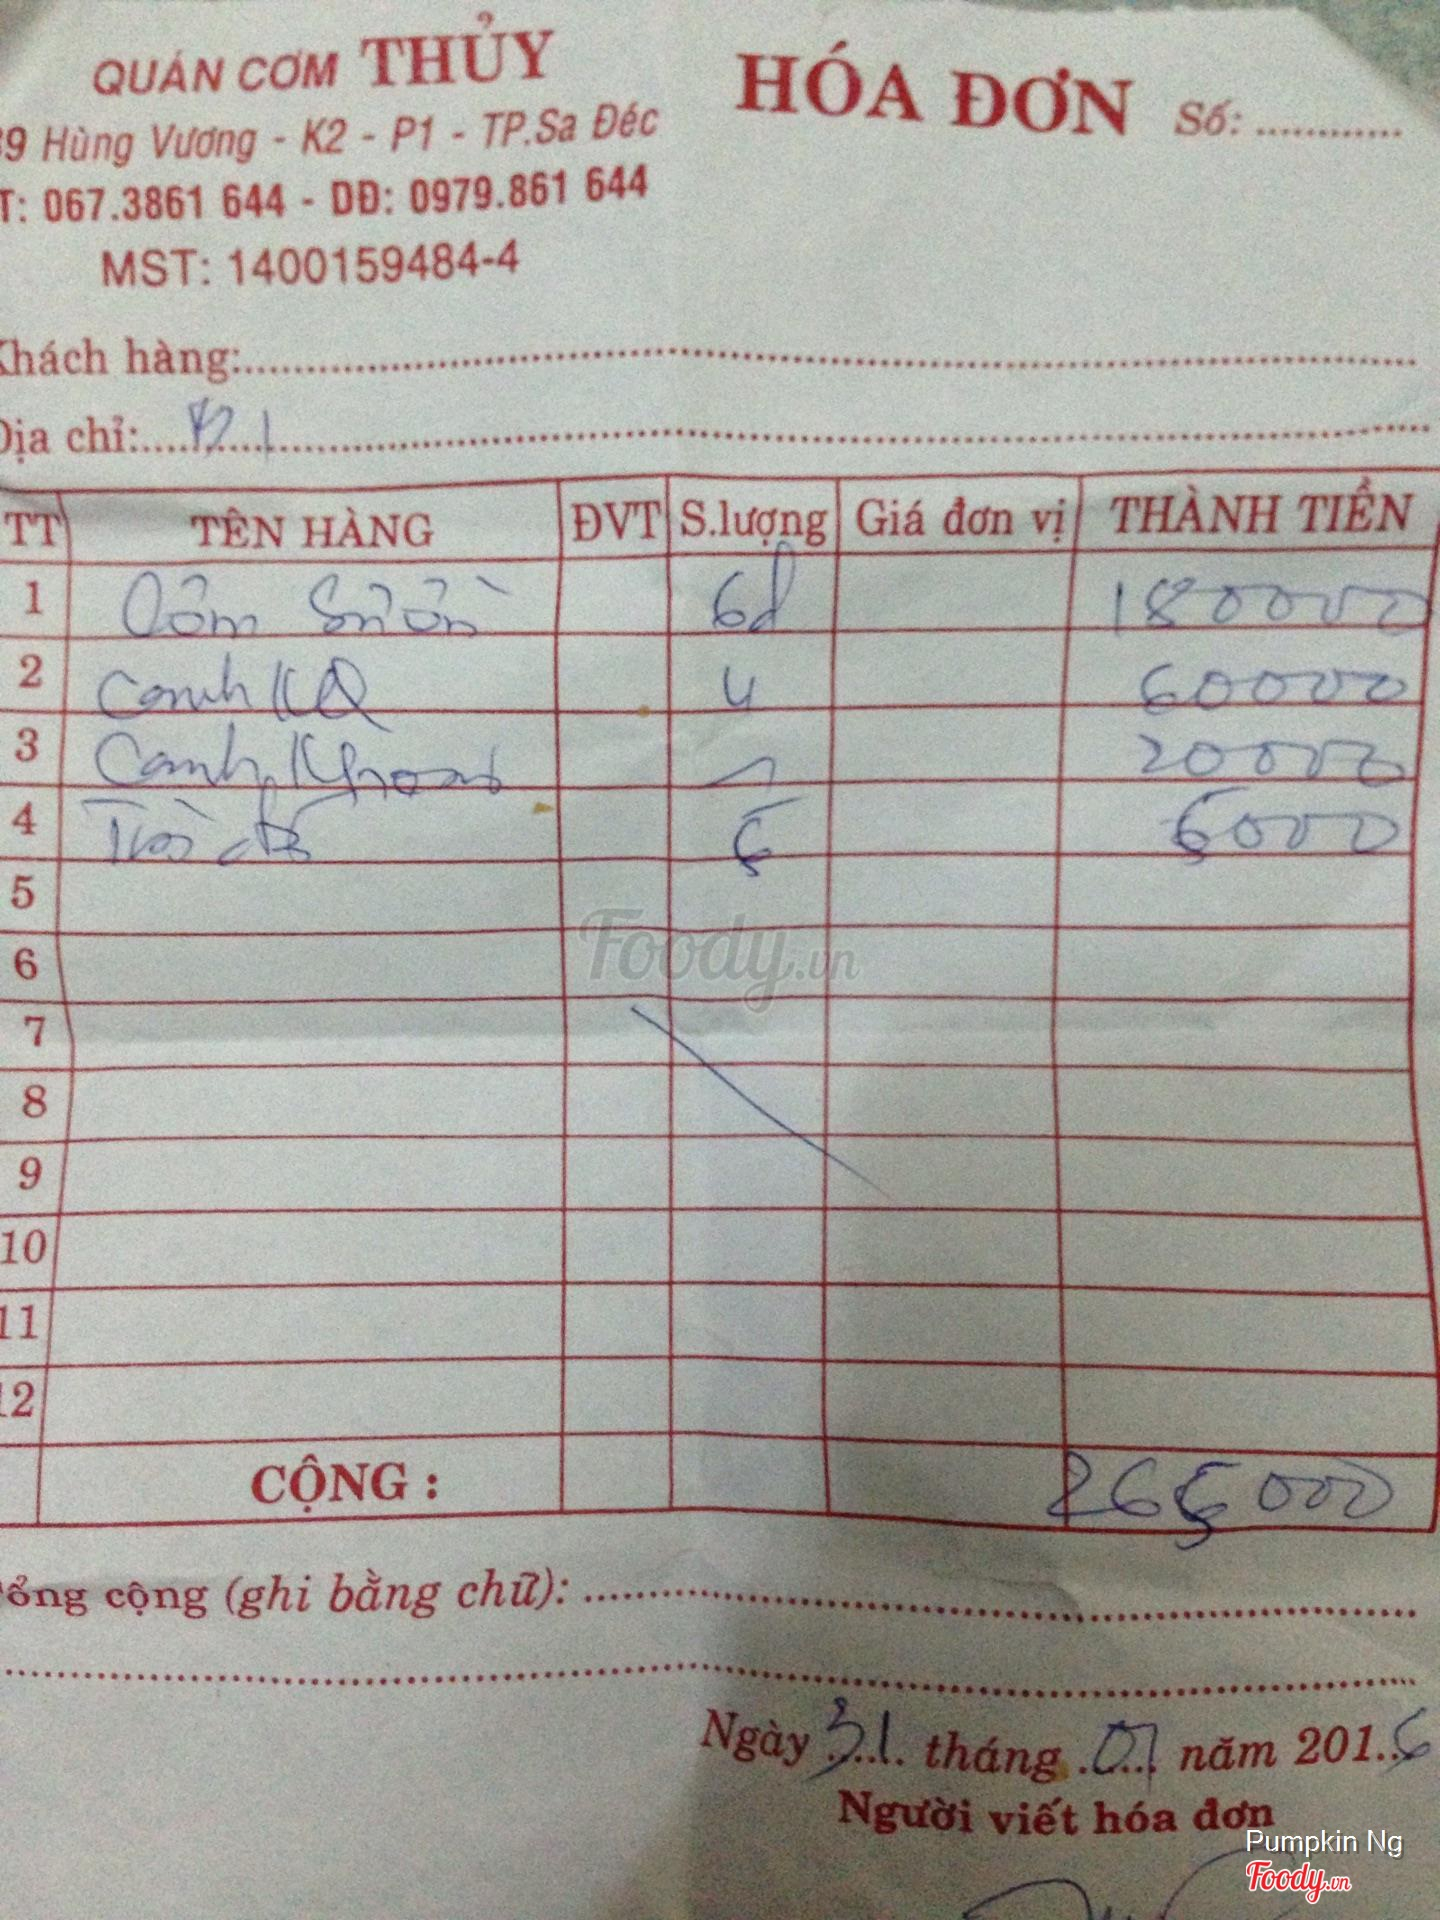 QUÁN CƠM THỦY
HÓA ĐƠN Số:
39 Hùng Vương - K2 - P1 - TP.Sa Đéc
T: 067.3861 644 - DĐ: 0979.861 644
MST: 1400159484-4
Khách hàng:
Địa chỉ:
TT TÊN HÀNG ĐVT S.lượng Giá đơn vị THÀNH TIỀN
1 Cơm Sườn 6d 180000
2 Canh KQ 4 60000
3 Canh Khoai 1 20000
4 Trà đá 5 5000
5
6
7
8
9
10
11
12
CỘNG : 265000
Tổng cộng (ghi bằng chữ):
Ngày 31 tháng 01 năm 2016
Người viết hóa đơn
Foody.vn
Pumpkin Ng
Foody.vn